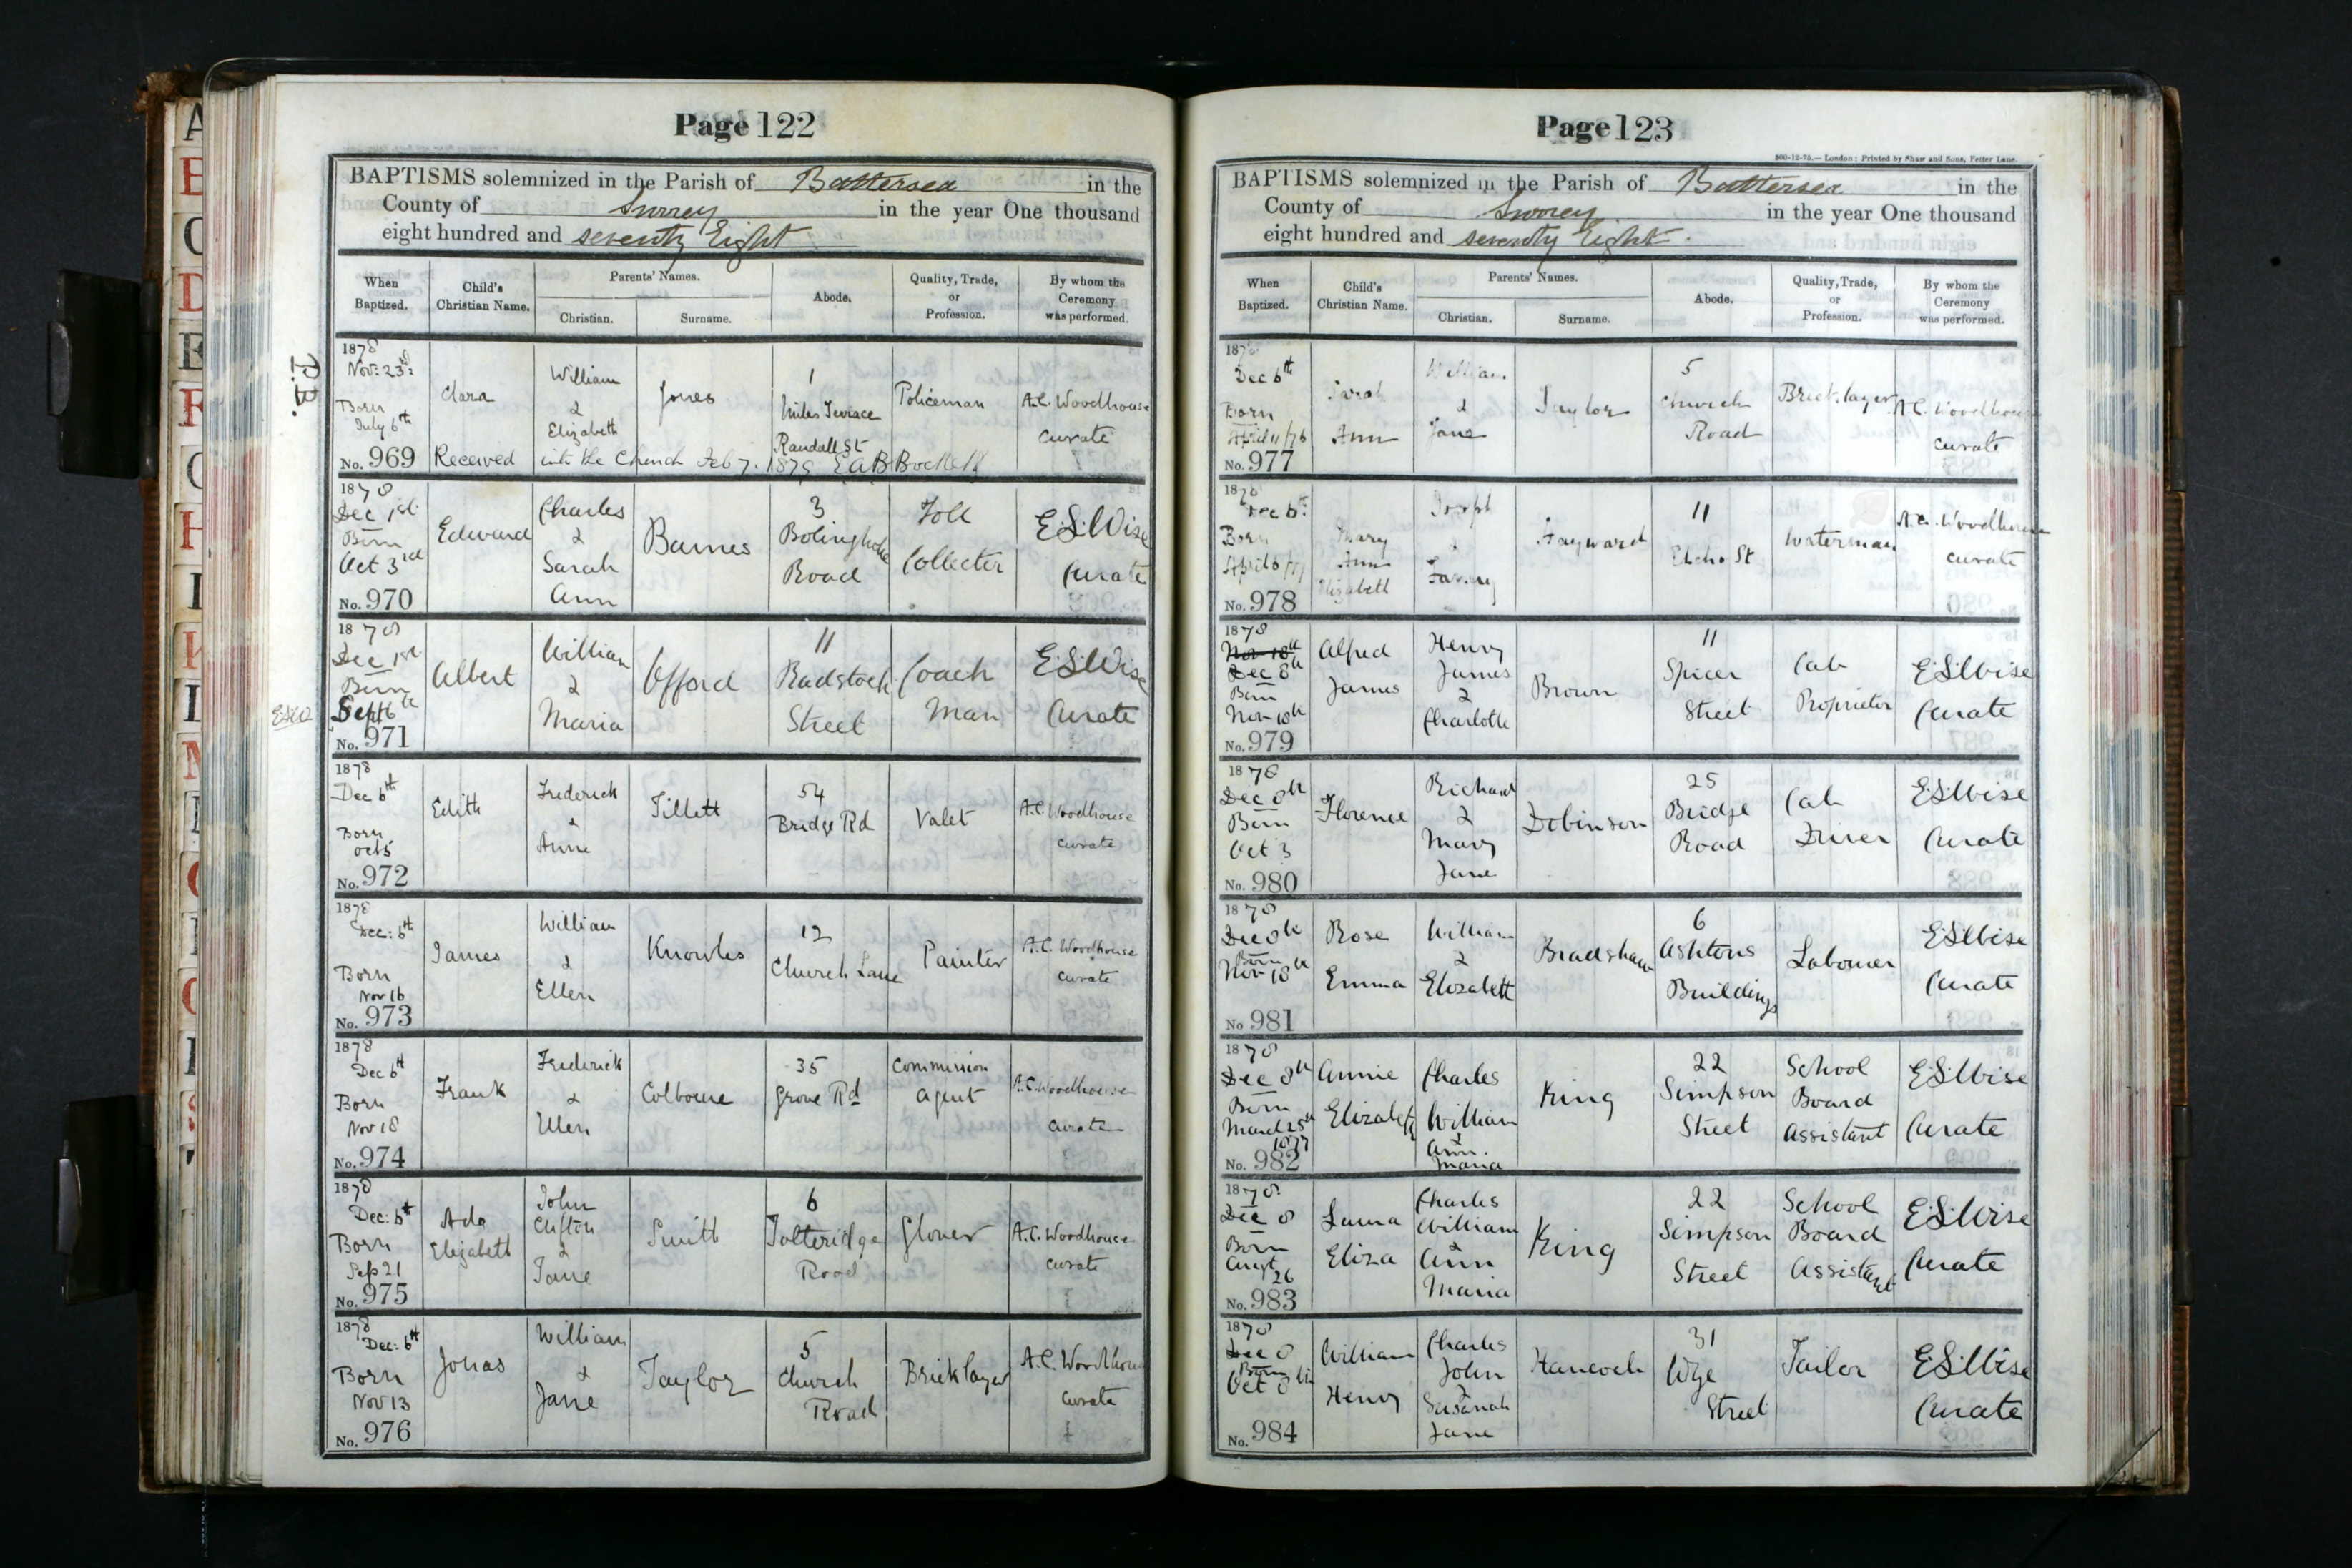 Page 122
BAPTISMS solemnized in the Parish of Battersea in the
County of Surrey in the year One thousand
eight hundred and seventy Eight
When Baptized.
Child's Christian Name.
Parents' Names.
Christian.
Surname.
Abode.
Quality, Trade, or Profession.
By whom the Ceremony was performed.
P.B.
1878
Nov: 23rd:
Born
July 6th
No. 969
Clara
William
&
Elizabeth
Jones
1
Miles Terrace
Randall St
Policeman
A.C. Woodhouse
curate
Received into the Church Feb 7. 1879 E A B
1878
Dec 1st
Born
Oct 3rd
No. 970
Edward
Charles
&
Sarah
Ann
Barnes
3
Bolingbroke
Road
Toll
Collecter
E.S. Wise
Curate
1878
Dec 1st
Born
Sept 6th
No. 971
ESW
Albert
William
&
Maria
Offord
11
Radstock
Street
Coach
Man
E.S. Wise
Curate
1878
Dec 6th
Born
Oct 5
No. 972
Edith
Frederick
&
Anne
Tillett
54
Bridge Rd
Valet
A.C. Woodhouse
curate
1878
Dec: 6th
Born
Nov 16
No. 973
James
William
&
Ellen
Knowles
12
Church Lane
Painter
A.C. Woodhouse
curate
1878
Dec 6th
Born
Nov 18
No. 974
Frank
Frederick
&
Ellen
Colborne
35
Grove Rd
Commission
Agent
A.C. Woodhouse
curate
1878
Dec: 6th
Born
Sep 21
No. 975
Ada
Elizabeth
John
Clifton
&
Jane
Smith
6
Totteridge
Road
Glover
A.C. Woodhouse
curate
1878
Dec: 6th
Born
Nov 13
No. 976
Jonas
William
&
Jane
Taylor
5
Church
Road
Bricklayer
A.C. Woodhouse
curate
Page 123
300-12-75.— London: Printed by Shaw and Sons, Fetter Lane.
BAPTISMS solemnized in the Parish of Battersea in the
County of Surrey in the year One thousand
eight hundred and seventy Eight.
When Baptized.
Child's Christian Name.
Parents' Names.
Christian.
Surname.
Abode.
Quality, Trade, or Profession.
By whom the Ceremony was performed.
1878
Dec 6th
Born
April 11/76
No. 977
Sarah
Ann
William
&
Jane
Taylor
5
Church
Road
Bricklayer
A.C. Woodhouse
curate
1878
Dec 6th
Born
April 6/77
No. 978
Mary
Ann
Elizabeth
Joseph
&
Fanny
Hayward
11
Elcho St
Waterman
A.C. Woodhouse
curate
1878
Nov 10th
Dec 8th
Born
Nov 10th
No. 979
Alfred
James
Henry
James
&
Charlotte
Brown
11
Spicer
Street
Cab
Proprietor
E.S. Wise
Curate
1878
Dec 8th
Born
Oct 3
No. 980
Florence
Richard
&
Mary
Jane
Dobinson
25
Bridge
Road
Cab
Driver
E.S. Wise
Curate
1878
Dec 8th
Born
Nov 18th
No 981
Rose
Emma
William
&
Elizabeth
Bradshaw
6
Ashtons
Buildings
Labourer
E.S. Wise
Curate
1878
Dec 8th
Born
March 25th
1877
No. 982
Annie
Elizabeth
Charles
William
&
Ann.
Maria
King
22
Simpson
Street
School
Board
Assistant
E.S. Wise
Curate
1878
Dec 8
Born
Augst
26
No. 983
Laura
Eliza
Charles
William
&
Ann
Maria
King
22
Simpson
Street
School
Board
Assistant
E.S. Wise
Curate
1878
Dec 8
Born
Oct 8th
No. 984
William
Henry
Charles
John
&
Susanah
Jane
Hancock
31
Wye
Street
Tailor
E.S. Wise
Curate